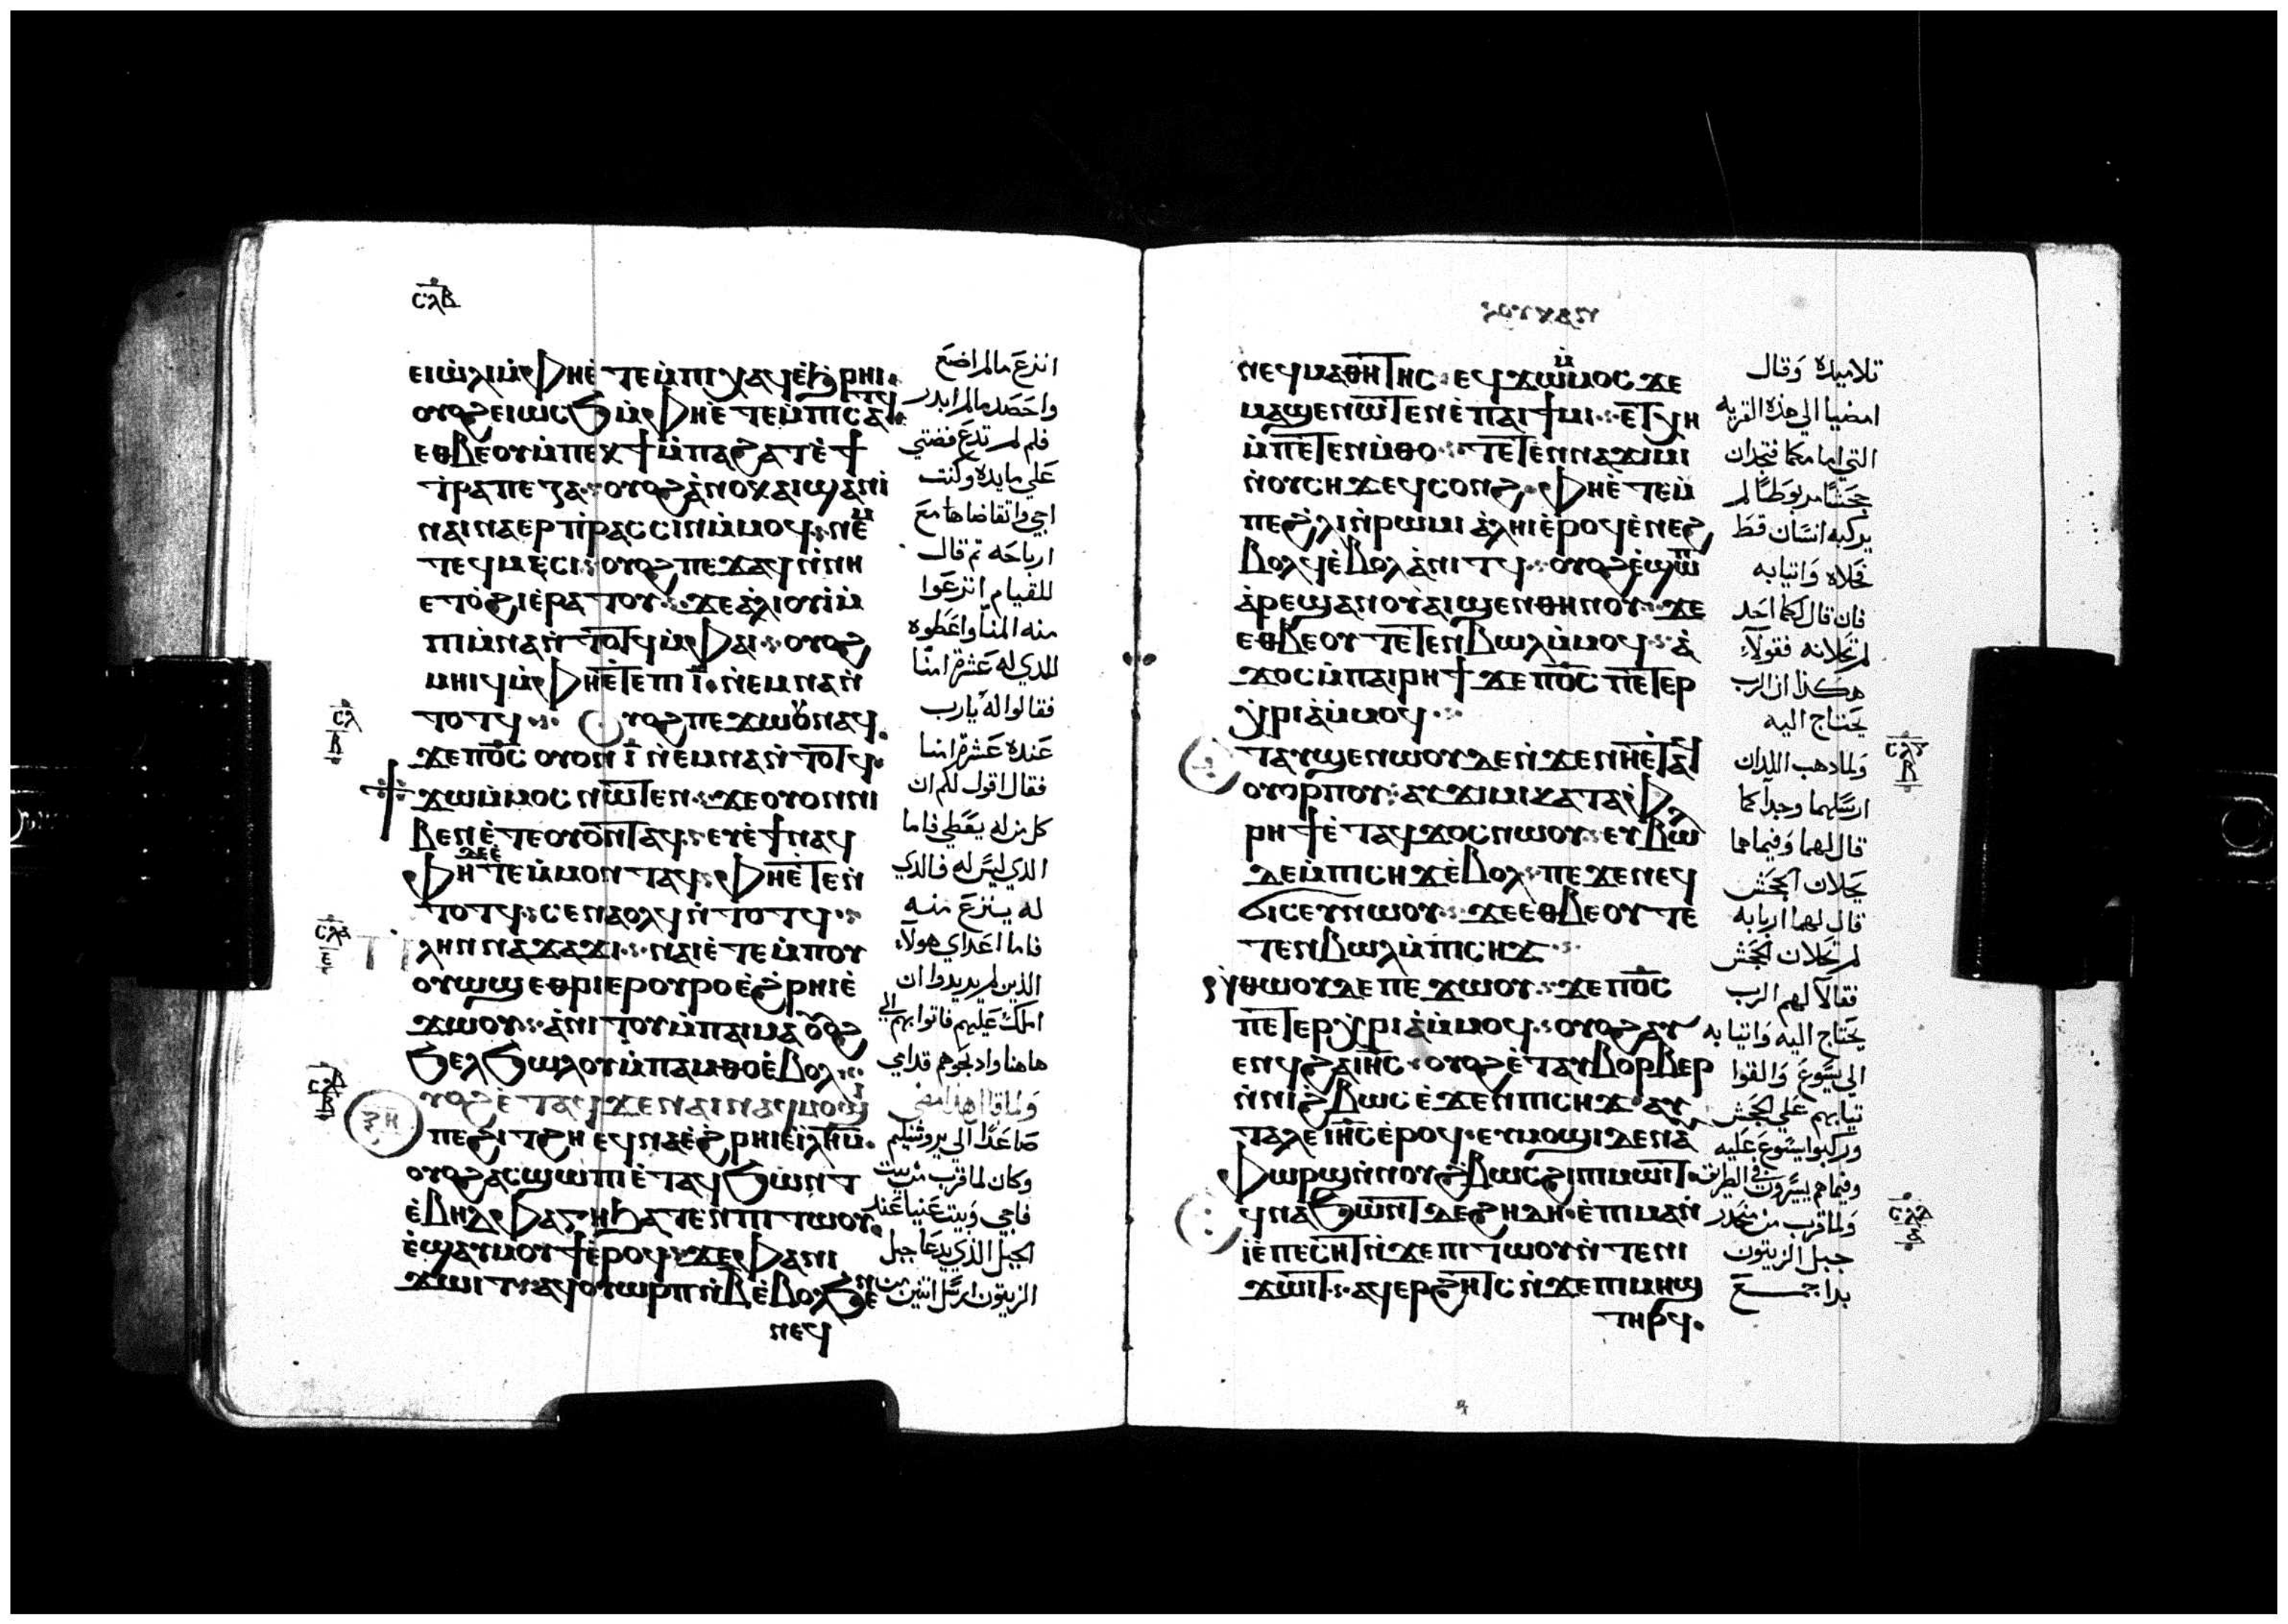 ⲥⲗⲃ
ⲉⲓⲱⲗⲓ ⲙ̀ⲫⲏⲉ̀ⲧⲉⲙ̀ⲡⲓⲭⲁϥ ⲉ̀ϧⲣⲏⲓ·
ⲟⲩⲟϩ ⲉⲓⲱⲥϧ ⲙ̀ⲫⲏⲉ̀ⲧⲉⲙ̀ⲡⲓⲥⲁⲧϥ·
ⲉⲑⲃⲉⲟⲩ ⲙ̀ⲡⲉⲕϯ ⲙ̀ⲡⲁϩⲁⲧ ⲉ̀ϯ
ⲧ̀ⲣⲁⲡⲉⲍⲁ· ⲟⲩⲟϩ ⲁ̀ⲛⲟⲕ ⲁⲓϣⲁⲛⲓ̀
ⲛⲁⲓⲛⲁⲉⲣⲡ̀ⲣⲁⲥⲥⲓⲛ ⲙ̀ⲙⲟϥ ⲛⲉⲙ
ⲧⲉϥⲙⲏⲥⲓ· ⲟⲩⲟϩ ⲡⲉϫⲁϥ ⲛ̀ⲛⲏ
ⲉⲧⲟ̀ϩⲓ ⲉ̀ⲣⲁⲧⲟⲩ· ϫⲉ ⲁ̀ⲗⲓⲟⲩⲓ̀ ⲙ̀
ⲡⲓⲙ̀ⲛⲁ ⲛ̀ⲧⲟⲧϥ ⲙ̀ⲫⲁⲓ· ⲟⲩⲟϩ
ⲙⲏⲓϥ ⲙ̀ⲫⲏⲉ̀ⲧⲉ ⲡⲓⲓ̅ ⲛ̀ⲉⲙⲛⲁ ⲛ̀
ⲧⲟⲧϥ· Ⲟⲩⲟϩ ⲡⲉϫⲱⲟⲩ ⲛⲁϥ
ϫⲉ ⲡⲟ̅ⲥ̅ ⲟⲩⲟⲛ ⲓ̅ ⲛ̀ⲉⲙⲛⲁ ⲛ̀ⲧⲟⲧϥ·
ϫⲱ ⲙ̀ⲙⲟⲥ ⲛⲱⲧⲉⲛ· ϫⲉ ⲟⲩⲟⲛ ⲛⲓ
ⲃⲉⲛ ⲉ̀ⲧⲉ ⲟⲩⲟⲛⲧⲁϥ· ⲉⲩⲉ̀ϯ ⲛⲁϥ
ⲫⲏ ⲇⲉ ⲉ̀ⲧⲉ ⲙ̀ⲙⲟⲛ ⲧⲁϥ· ⲫⲏⲉ̀ⲧⲉⲛ̀
ⲧⲟⲧϥ· ⲥⲉⲛⲁⲟⲗϥ ⲛ̀ⲧⲟⲧϥ·
ⲡⲗⲏⲛ ⲛⲁϫⲁϫⲓ· ⲛⲁⲓ ⲉ̀ⲧⲉⲙ̀ⲡⲟⲩ
ⲟⲩⲱϣ ⲉⲑⲣⲓⲉⲣⲟⲩⲣⲟ ⲉ̀ϩ̀ⲣⲏⲓ ⲉ̀
ϫⲱⲟⲩ· ⲁ̀ⲛⲓⲧⲟⲩ ⲙ̀ⲡⲁⲓⲙⲁ ⲟⲩⲟϩ
ϧⲉⲗϧⲱⲗⲟⲩ ⲙ̀ⲡⲁⲙ̀ⲑⲟ ⲉ̀ⲃⲟⲗ·
ⲟⲩⲟϩ ⲉ̀ⲧⲁϥϫⲉ ⲛⲁⲓ ⲛⲁϥⲙⲟϣⲓ
ⲡⲉ ϩⲓ ⲧ̀ϩⲏ ⲉϥⲛⲁ ⲉ̀ϩ̀ⲣⲏⲓ ⲉ̀ⲓ̅ⲗ̅ⲏ̅ⲙ̅·
ⲟⲩⲟϩ ⲁⲥϣⲱⲡⲓ ⲉ̀ⲧⲁϥϧⲱⲛⲧ
ⲉ̀ⲃⲏⲇⲫⲁⲅⲏ ϧⲁⲧⲉⲛ ⲡⲓⲧⲱⲟⲩ
ⲉ̀ϣⲁⲩⲙⲟⲩϯ ⲉ̀ⲣⲟϥ ϫⲉ ⲫⲁ ⲛⲓ
ϫⲱⲓⲧ· ⲁϥⲟⲩⲱⲣⲡ ⲛ̀ⲃ̅ ⲉ̀ⲃⲟⲗϧⲉⲛ
ⲛⲉϥ
انزع مالم اضع
واحصد مالم ابدر
فلم لم تدع فضتي
علي مايده وكنت
اجي واتقاضاها مع
ارباحه ثم قال
للقيام انزعوا
منه المنا واعطوه
للدي له عشرة امنا
فقالوا له يارب
عنده عشرة امنا
فقال اقول لكم ان
كل من له يعطي فاما
الدي ليس له فالدي
له ينزع منه
فاما اعداي هولاء
الدين لم يريدوا ان
املك عليهم فاتوا بهم الي
هاهنا وادبحوهم قدامي
ولما قال هذا مضي
صاعدًا الي يروشليم
وكان لما قرب من بيت
فاجي وبيت عنيا عند
الجبل الذي يدعا جبل
الزيتون ارسل اتنين من
ⲗⲟⲩⲕⲁⲛ
ⲛⲉϥⲙⲁⲑⲏⲧⲏⲥ· ⲉϥϫⲱ ⲙ̀ⲙⲟⲥ ϫⲉ
ⲙⲁϣⲉⲛⲱⲧⲉⲛ ⲉ̀ⲡⲁⲓϯⲙⲓ· ⲉⲧⲭⲏ
ⲙ̀ⲡⲉⲧⲉⲛⲙ̀ⲑⲟ· ⲧⲉⲧⲉⲛⲛⲁϫⲓⲙⲓ
ⲛ̀ⲟⲩⲥⲏϫ ⲉϥⲥⲟⲛϩ· ⲫⲏⲉ̀ⲧⲉⲙ̀
ⲡⲉϩ̀ⲗⲓ ⲛ̀ⲣⲱⲙⲓ ⲁ̀ⲗⲏⲓ ⲉ̀ⲣⲟϥ ⲉ̀ⲛⲉϩ
ⲃⲟⲗϥ ⲉ̀ⲃⲟⲗ ⲁ̀ⲛⲓⲧϥ· ⲟⲩⲟϩ ⲉ̀ϣⲱⲡ
ⲁ̀ⲣⲉϣⲁⲛ ⲟⲩⲁⲓ ϣⲉⲛ ⲑⲏⲛⲟⲩ· ϫⲉ
ⲉⲑⲃⲉⲟⲩ ⲧⲉⲧⲉⲛⲃⲱⲗ ⲙ̀ⲙⲟϥ· ⲁ̀
ϫⲟⲥ ⲙ̀ⲡⲁⲓⲣⲏϯ ϫⲉ ⲡⲟ̅ⲥ̅ ⲡⲉⲧⲉⲣ
ⲭ̀ⲣⲓⲁ ⲙ̀ⲙⲟϥ·
ⲉⲧⲁⲩϣⲉⲛⲱⲟⲩ ⲇⲉ ⲛ̀ϫⲉ ⲛⲏⲉ̀ⲧⲁϥ
ⲟⲩⲟⲣⲡⲟⲩ· ⲁⲩϫⲓⲙⲓ ⲕⲁⲧⲁ ⲫ
ⲣⲏϯ ⲉ̀ⲧⲁϥϫⲟⲥ ⲛⲱⲟⲩ· ⲉⲩⲃⲱⲗ
ⲇⲉ ⲙ̀ⲡⲓⲥⲏϫ ⲉ̀ⲃⲟⲗ· ⲡⲉϫⲉ ⲛⲉϥ
ϭⲓⲥⲉⲩ ⲛⲱⲟⲩ· ϫⲉ ⲉⲑⲃⲉⲟⲩ ⲧⲉ
ⲧⲉⲛⲃⲱⲗ ⲙ̀ⲡⲓⲥⲏϫ·
ⲛ̀ⲑⲱⲟⲩ ⲇⲉ ⲡⲉϫⲱⲟⲩ· ϫⲉ ⲡⲟ̅ⲥ̅
ⲡⲉⲧⲉⲣⲭ̀ⲣⲓⲁ ⲙ̀ⲙⲟϥ· ⲟⲩⲟϩ ⲁⲩ
ⲉⲛϥ ϩⲁ ⲓ̅ⲏ̅ⲥ̅· ⲟⲩⲟϩ ⲉ̀ⲧⲁⲩⲃⲟⲣⲃⲉⲣ
ⲛ̀ⲛⲓϩ̀ⲃⲱⲥ ⲉ̀ϫⲉⲛ ⲡⲓⲥⲏϫ· ⲁⲩ
ⲧⲁⲗⲉ ⲓ̅ⲏ̅ⲥ̅ ⲉ̀ⲣⲟϥ· ⲉⲩⲙⲟϣⲓ ⲇⲉ ⲛⲁ
ⲫⲱⲣϣ ⲛ̀ⲛⲟⲩϩ̀ⲃⲱⲥ ϩⲓ ⲡⲓⲙⲱⲓⲧ·
ⲉϥⲛⲁϧⲱⲛⲧ ⲇⲉ ϩⲏⲇⲏ· ⲉ̀ⲡⲓⲙⲁ ⲛ̀
ⲓ̀ ⲉ̀ⲡⲉⲥⲏⲧ ⲛ̀ϫⲉ ⲡⲓⲧⲱⲟⲩ ⲛ̀ⲧⲉ ⲛⲓ
ϫⲱⲓⲧ· ⲁϥⲉⲣϩⲏⲧⲥ ⲛ̀ϫⲉ ⲡⲓⲙⲏϣ
ⲧⲏⲣϥ·
تلاميده وقال
امضيا الي هذه القريه
التي امامكما فتجدان
جحشًا مربوطًا لم
يركبه انسان قط
فحلاه واتيا به
فان قال لكما احد
لم تحلانه فقولاء
هكذا ان الرب
يحتاج اليه
ولما دهب اللدان
ارسلهما وجدا كما
قال لهما وفيما هما
يحلان الجحش
قال لهما اربابه
لم تحلان الجحش
فقالا لهم الرب
يحتاج اليه واتيا به
الي يسوع والقوا
تيابهم علي الجحش
وركبوا يسوع عليه
وفيما هم يسيرون في الطريق
ولما قرب من منحدر
جبل الزيتون
بدا جمع